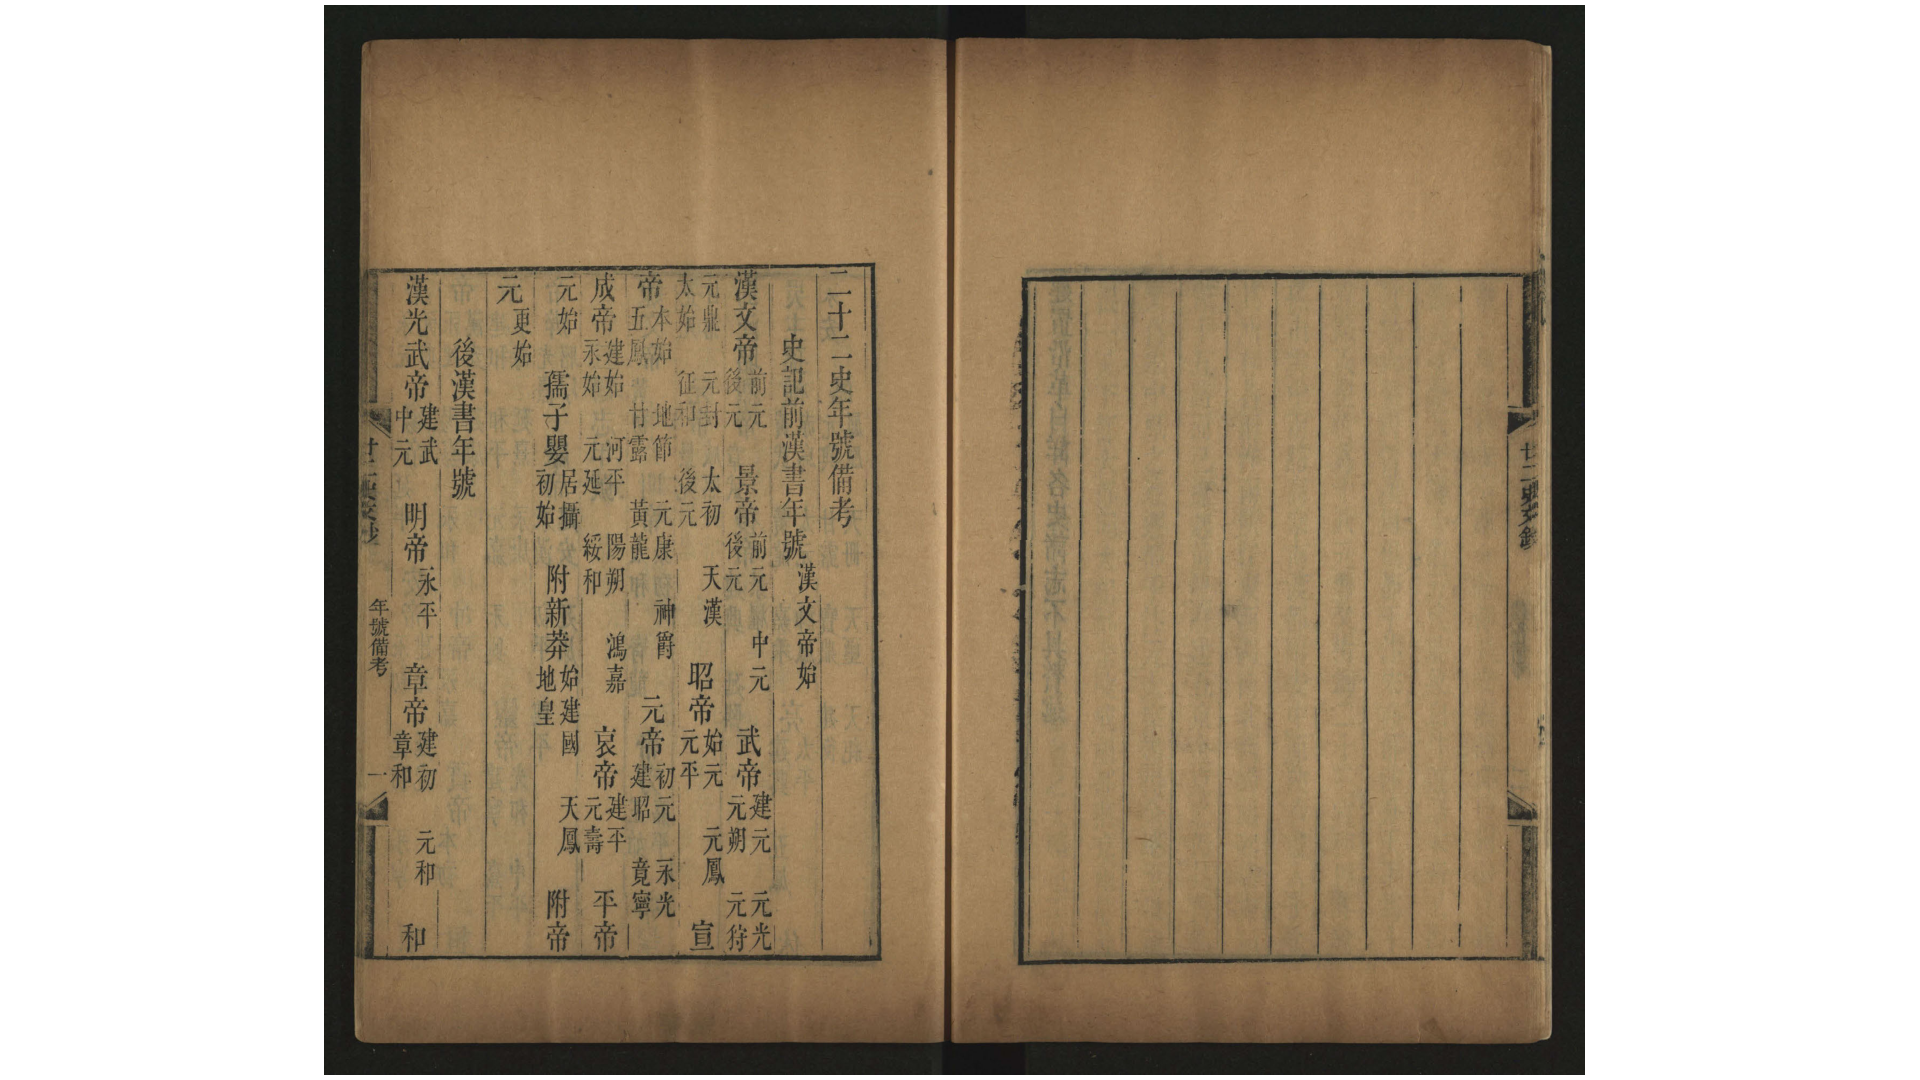 廿二史文鈔
二十二史年號備考
史記前漢書年號 漢文帝始
漢文帝 前元 後元 景帝 前元 中元 後元 武帝 建元 元光 元朔 元狩
元鼎 元封 太初 天漢 太始 征和 後元 昭帝 始元 元鳳 元平 宣
帝 本始 地節 元康 神爵 五鳳 甘露 黃龍 元帝 初元 永光 建昭 竟寧
成帝 建始 河平 陽朔 鴻嘉 永始 元延 綏和 哀帝 建平 元壽 平帝
元始 孺子嬰 居攝 初始 附新莽 始建國 天鳳 地皇 附帝
元 更始
後漢書年號
漢光武帝 建武 中元 明帝 永平 章帝 建初 元和 章和 和
廿二史文鈔 年號備考 一